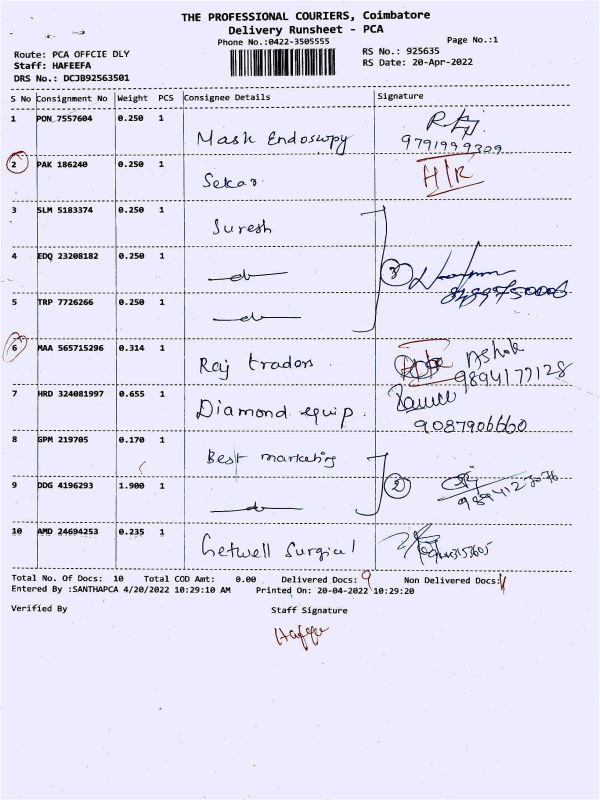 THE PROFESSIONAL COURIERS, Coimbatore
Delivery Runsheet - PCA
Phone No.:0422-3505555
Page No.:1
Route: PCA OFFCIE DLY
RS No.: 925635
Staff: HAFEEFA
RS Date: 20-Apr-2022
DRS No.: DCJB92563501
S No Consignment No Weight PCS Consignee Details Signature
1 PON 7557604 0.250 1 Mash Endoscopy
9791999309
2 PAK 186240 0.250 1 Sekar H/R
3 SLM 5183374 0.250 1 Suresh
4 EDQ 23208182 0.250 1 do 3
5 TRP 7726266 0.250 1 do
6 MAA 565715296 0.314 1 Raj traders Ashok
9894177128
7 HRD 324081997 0.655 1 Diamond equip.
9087906660
8 GPM 219705 0.170 1 Best marketing
9 DDG 4196293 1.900 1 do 2
10 AMD 24694253 0.235 1 Getwell Surgical
Total No. Of Docs: 10 Total COD Amt: 0.00 Delivered Docs: 9 Non Delivered Docs:
Entered By :SANTHAPCA 4/20/2022 10:29:10 AM Printed On: 20-04-2022 10:29:20
Verified By Staff Signature